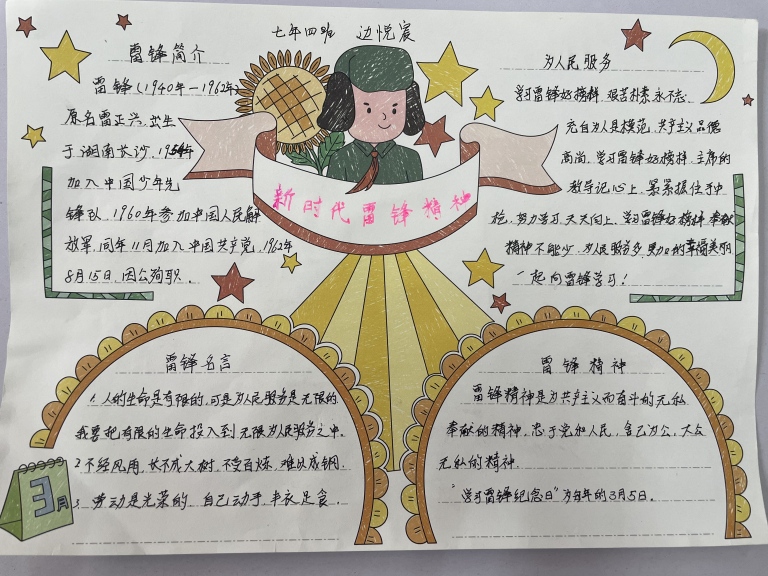 七年四班 边悦宸
雷锋简介
雷锋(1940年一1962年)
原名雷正兴,出生
于湖南长沙,1954年
加入中国少年先
锋队,1960年参加中国人民解
放军,同年11月加入中国共产党,1962年
8月15日,因公殉职.
新时代雷锋精神
为人民服务
学习雷锋好榜样 艰苦朴素永不忘,
克自为人是模范,共产主义品德
高尚.学习雷锋好榜样.主席的
教导记心上.紧紧握住手中
枪,努力学习,天天向上,学习雷锋好榜样 奉献
精神不能少.为人民服务多,更加的幸福美丽
一起向雷锋学习!
雷锋名言
1.人的生命是有限的,可是为人民服务是无限的
我要把有限的生命投入到无限为人民服务之中.
2.不经风雨,长不成大树,不受百炼,难以成钢.
3.劳动是光荣的 自己动手 丰衣足食.
3月
雷锋精神
雷锋精神是为共产主义而奋斗的无私
奉献的精神,忠于党和人民,舍己为公,大公
无私的精神.
"学习雷锋纪念日"为每年的3月5日.